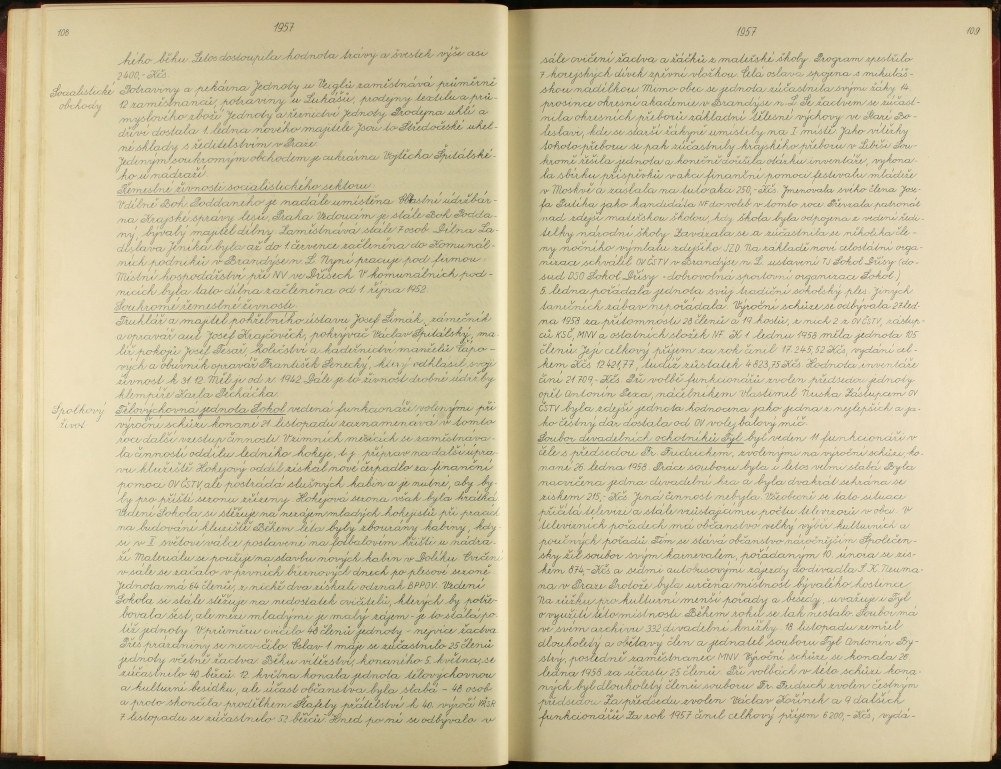 108
1957
kého běhu. Letos dostoupila hodnota trávy a švestek výše asi
2400,- Kčs.
Socialistické obchody
Potraviny a pekárna Jednoty u Veiglů zaměstnává průměrně
12 zaměstnanců, potraviny u Lukášů, prodejny textilu a prů-
myslového zboží Jednoty a řeznictví Jednoty. Prodejna uhlí a
dříví dostala 1. ledna nového majitele. Jsou to Středočeské uhel-
né sklady s ředitelstvím v Praze.
Jediným soukromým obchodem je cukrárna Vojtěcha Špitálské-
ho u nádraží.
Řemeslné živnosti socialistického sektoru.
V dílně Boh. Poddaného je nadále umístěna Oblastní údržbár-
na Krajské správy lesů, Praha. Vedoucím je stále Boh. Podda-
ný, bývalý majitel dílny. Zaměstnává stále 7 osob. Dílna La-
dislava Jeníka byla až do 1. července začleněna do Komunál-
ních podniků v Brandýse n. L. Nyní pracuje pod firmou:
Místní hospodářství při NV ve Dřísech. V komunálních pod-
nicích byla tato dílna začleněna od 1. října 1952.
Soukromé řemeslné živnosti.
Truhlář a majitel pohřebního ústavu Josef Šimák, zámečník
a opravář aut Josef Krajčovich, pokrývač Václav Špitálský, ma-
líř pokojů Josef Tesař, holičství a kadeřnictví manželů Čápo-
vých a obuvník opravář František Senecký, který odhlásil svoji
živnost k 31. 12. Měl je od r. 1942. Dále je to živnost drobné údržby
klempíře Karla Pecháčka.
Spolkový život
Tělovýchovná jednota Sokol vedená funkcionáři, volenými při
výroční schůzi konané 21. listopadu zaznamenává v tomto
roce další vzestup činnosti. V zimních měsících se zaměstnáva-
la činností oddílu ledního hokeje, t. j. příprav na další úpra-
vu kluziště. Hokejový oddíl získal nové čerpadlo za finanční
pomoci OV ČSTV, ale postrádá slušných kabin a je nutné, aby by-
ly pro příští sezonu zřízeny. Hokejová sezona však byla krátká.
Vedení Sokola si stěžuje na nezájem mladých hokejistů při pracích
na budování kluziště. Během léta byly zbourány kabiny, kdy-
si v I. světové válce postavené na fotbalovém hřišti u nádra-
ží. Materiálu se použije na stavbu nových kabin v Dolíku. Cvičení
v sále se začalo v prvních březnových dnech po plesové sezoně.
Jednota má 64 členů, z nichž dva získali odznak BPPOV. Vedení
Sokola si stále stěžuje na nedostatek cvičitelů, kterých by potře-
bovala šest, ale mezi mladými je malý zájem - je to stálá po-
tíž jednoty. V průměru cvičilo 48 členů jednoty - nejvíce žactva.
Přes prázdniny se necvičilo. Oslav 1. máje se zúčastnilo 25 členů
jednoty včetně žactva. Běhu vítězství, konaného 5. května, se
zúčastnilo 40 běžců. 12. května konala jednota tělovýchovnou
a kulturní besídku, ale účast občanstva byla slabá - 48 osob
a proto skončila prodělkem. Štafety přátelství k 40. výročí VŘSR
7. listopadu se zúčastnilo 52 běžců. Hned po ní se odbývalo v
1957
109
sále cvičení žactva a žáčků z mateřské školy. Program zpestřilo
7 korejských dívek zpěvní vložkou. Celá oslava spojena s mikuláš-
skou nadílkou. Mimo obec se jednota zúčastnila svými žáky 14.
prosince okresní akademie v Brandýse n. L. Se žactvem se zúčast-
nila okresních přeborů základní tělesné výchovy ve Staré Bo-
leslavi, kde se starší žákyně umístily na I. místě. Jako vítězky
tohoto přeboru se pak zúčastnily krajského přeboru v Libiši. Sou-
kromě řešila jednota a konečně dořešila otázku inventáře, vykona-
la sbírku příspěvků v akci finanční pomoci festivalu mládeže
v Moskvě a zaslala na tuto akci 250,- Kčs. Jmenovala svého člena Jose-
fa Tulíka jako kandidáta NF do voleb v tomto roce. Převzala patronát
nad zdejší mateřskou školou, kdy škola byla odpojena z vedení ředi-
telky národní školy. Zavázala se a zúčastnila se několika čle-
ny nočního výmlatu zdejšího JZD. Na základě nové celostátní orga-
nizace schválil OV ČSTV v Brandýse n. L. ustavení TJ Sokol Dřísy (do-
sud DSO Sokol Dřísy - dobrovolná sportovní organizace Sokol).
5. ledna pořádala jednota svůj tradiční sokolský ples. Jiných
tanečních zábav nepořádala. Výroční schůze se odbývala 29. led-
na 1958 za přítomnosti 28 členů a 19 hostů, z nich 2 z OV ČSTV, zástup-
ců KSČ, MNV a ostatních složek NF. K 1. lednu 1958 měla jednota 105
členů. Její celkový příjem za rok činil 17.245,52 Kčs, vydání cel-
kem Kčs 12 421,77, tudíž zůstatek 4 823,75 Kčs. Hodnota inventáře
činí 21 709,- Kčs. Při volbě funkcionářů zvolen předsedou jednoty
opět Antonín Pexa, náčelníkem Vlastimil Hruška. Zástupcem OV
ČSTV byla zdejší jednota hodnocena jako jedna z nejlepších a ja-
ko čestný dar dostala od OV volejbalový míč.
Soubor divadelních ochotníků Tyl byl veden 11 funkcionáři v
čele s předsedou Fr. Fridrichem, zvolenými na výroční schůzi, ko-
nané 26. ledna 1958. Práce souboru byla i letos velmi slabá. Byla
nacvičena jedna divadelní hra a byla dvakrát sehrána se
ziskem 215,- Kčs. Jiná činnost nebyla. Všeobecně se tato situace
přičítá televizi a stále vzrůstajícímu počtu televizorů v obci. V
televizních pořadech má občanstvo velký výběr kulturních a
poučných pořadů. Tím se stává občanstvo náročnějším. Společen-
sky žil soubor svým karnevalem, pořádaným 10. února se zis-
kem 874,- Kčs a sedmi autobusovými zájezdy do divadla S. K. Neuma-
na v Praze. Protože byla určena místnost bývalého hostince
Na růžku pro kulturní menší pořady a besedy, uvažuje i Tyl
o využití této místnosti. Během roku se tak nestalo. Soubor má
ve svém archivu 332 divadelní knížky. 18. listopadu zemřel
dlouholetý a obětavý člen a jednatel souboru Tyl Antonín By-
strý, poslední zaměstnanec MNV. Výroční schůze se konala 26.
ledna 1958 za účasti 25 členů. Při volbách v této schůzi kona-
ných byl dlouholetý člen souboru Fr. Fridrich zvolen čestným
předsedou. Za předsedu zvolen Václav Kořínek a 9 dalších
funkcionářů. Za rok 1957 činil celkový příjem 6 200,- Kčs, vydá-